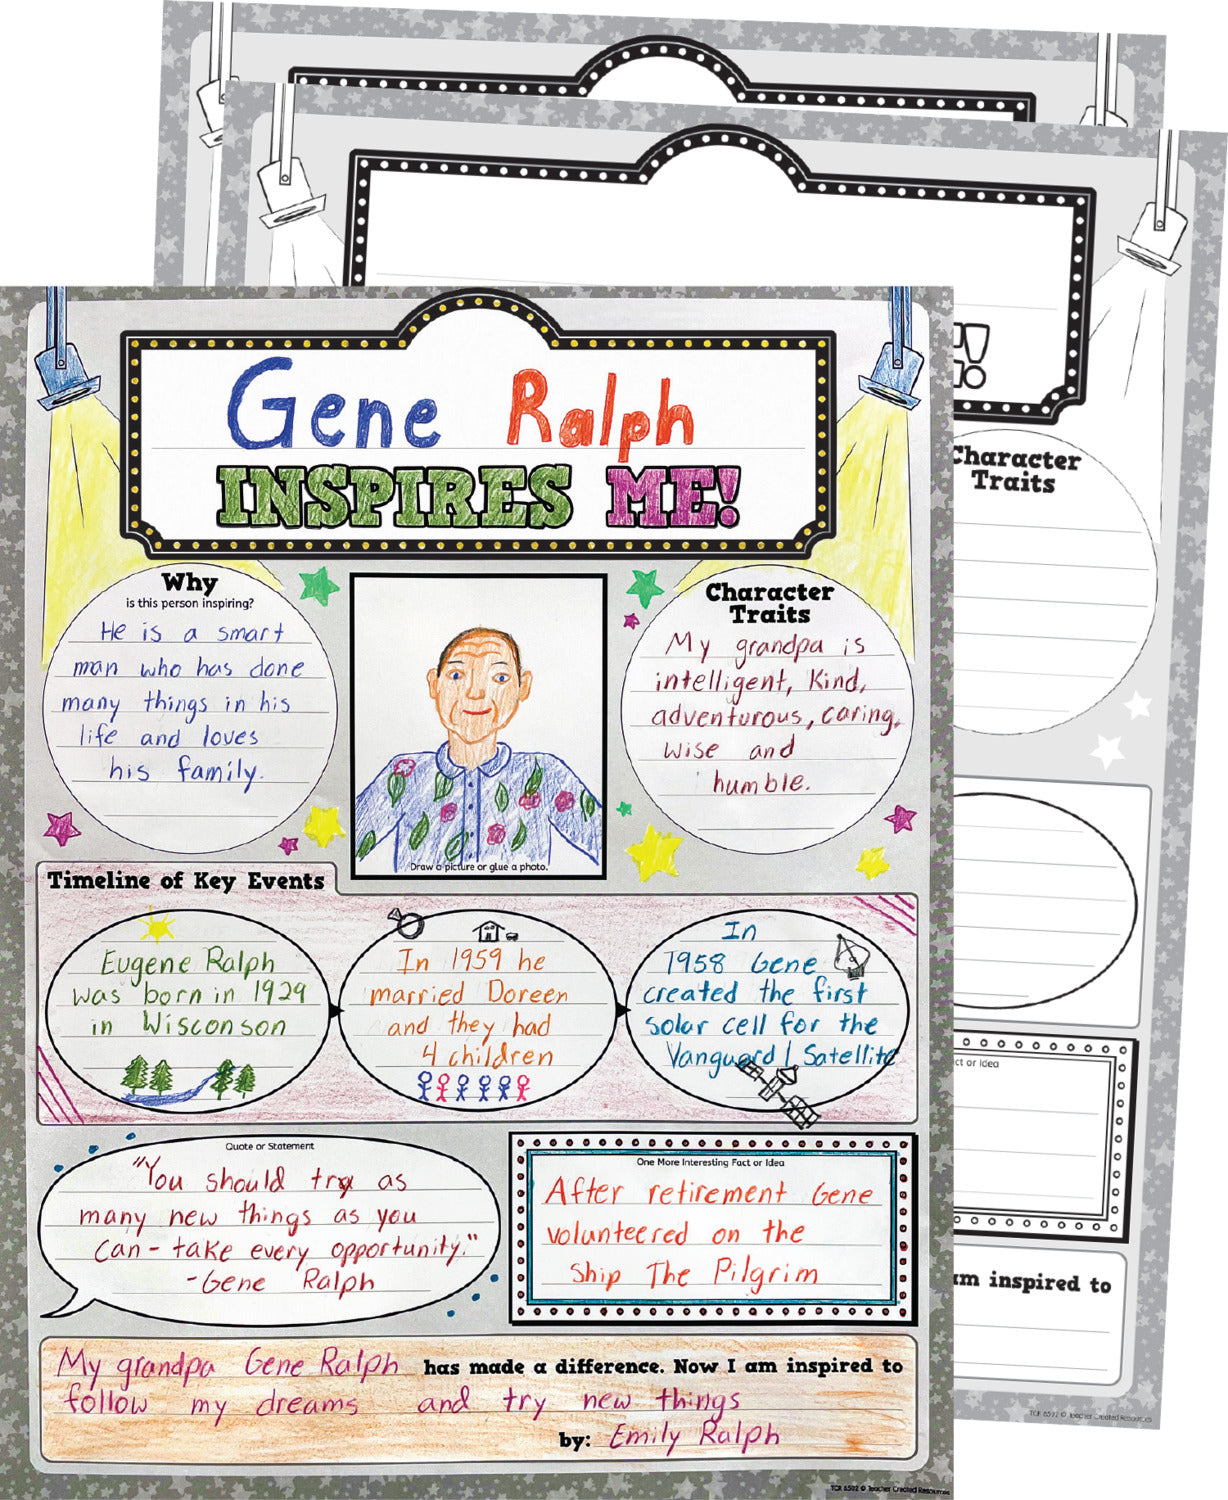 Gene Ralph
INSPIRES ME!
Why
is this person inspiring?
He is a smart
man who has done
many things in his
life and loves
his family.
Draw a picture or glue a photo.
Character
Traits
My grandpa is
intelligent, Kind,
adventurous, caring,
wise and
humble.
Timeline of Key Events
Eugene Ralph
was born in 1929
in Wisconson
In 1959 he
married Doreen
and they had
4 children
In
1958 Gene
created the first
solar cell for the
Vanguard 1 Satellite
Quote or Statement
"You should try as
many new things as you
can - take every opportunity."
-Gene Ralph
One More Interesting Fact or Idea
After retirement Gene
volunteered on the
ship The Pilgrim
My grandpa Gene Ralph has made a difference. Now I am inspired to
follow my dreams and try new things
by: Emily Ralph
TCR 6502 © Teacher Created Resources
Character
Traits
ct or Idea
am inspired to
TCR 6502 © Teacher Created Resources